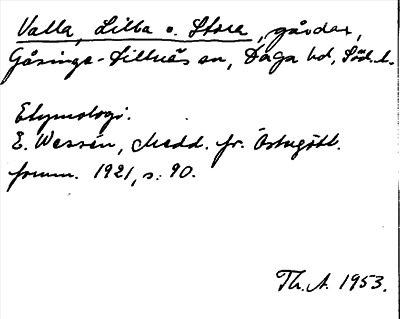 Valla, Lilla o. Stora, gårdar,
Gåsinge-Dillnäs sn, Daga hd, Söd. l.
Etymologi.
E. Wessén, Medd. fr. Östergötl.
fornm. 1921, s. 90.
Th. A. 1953.